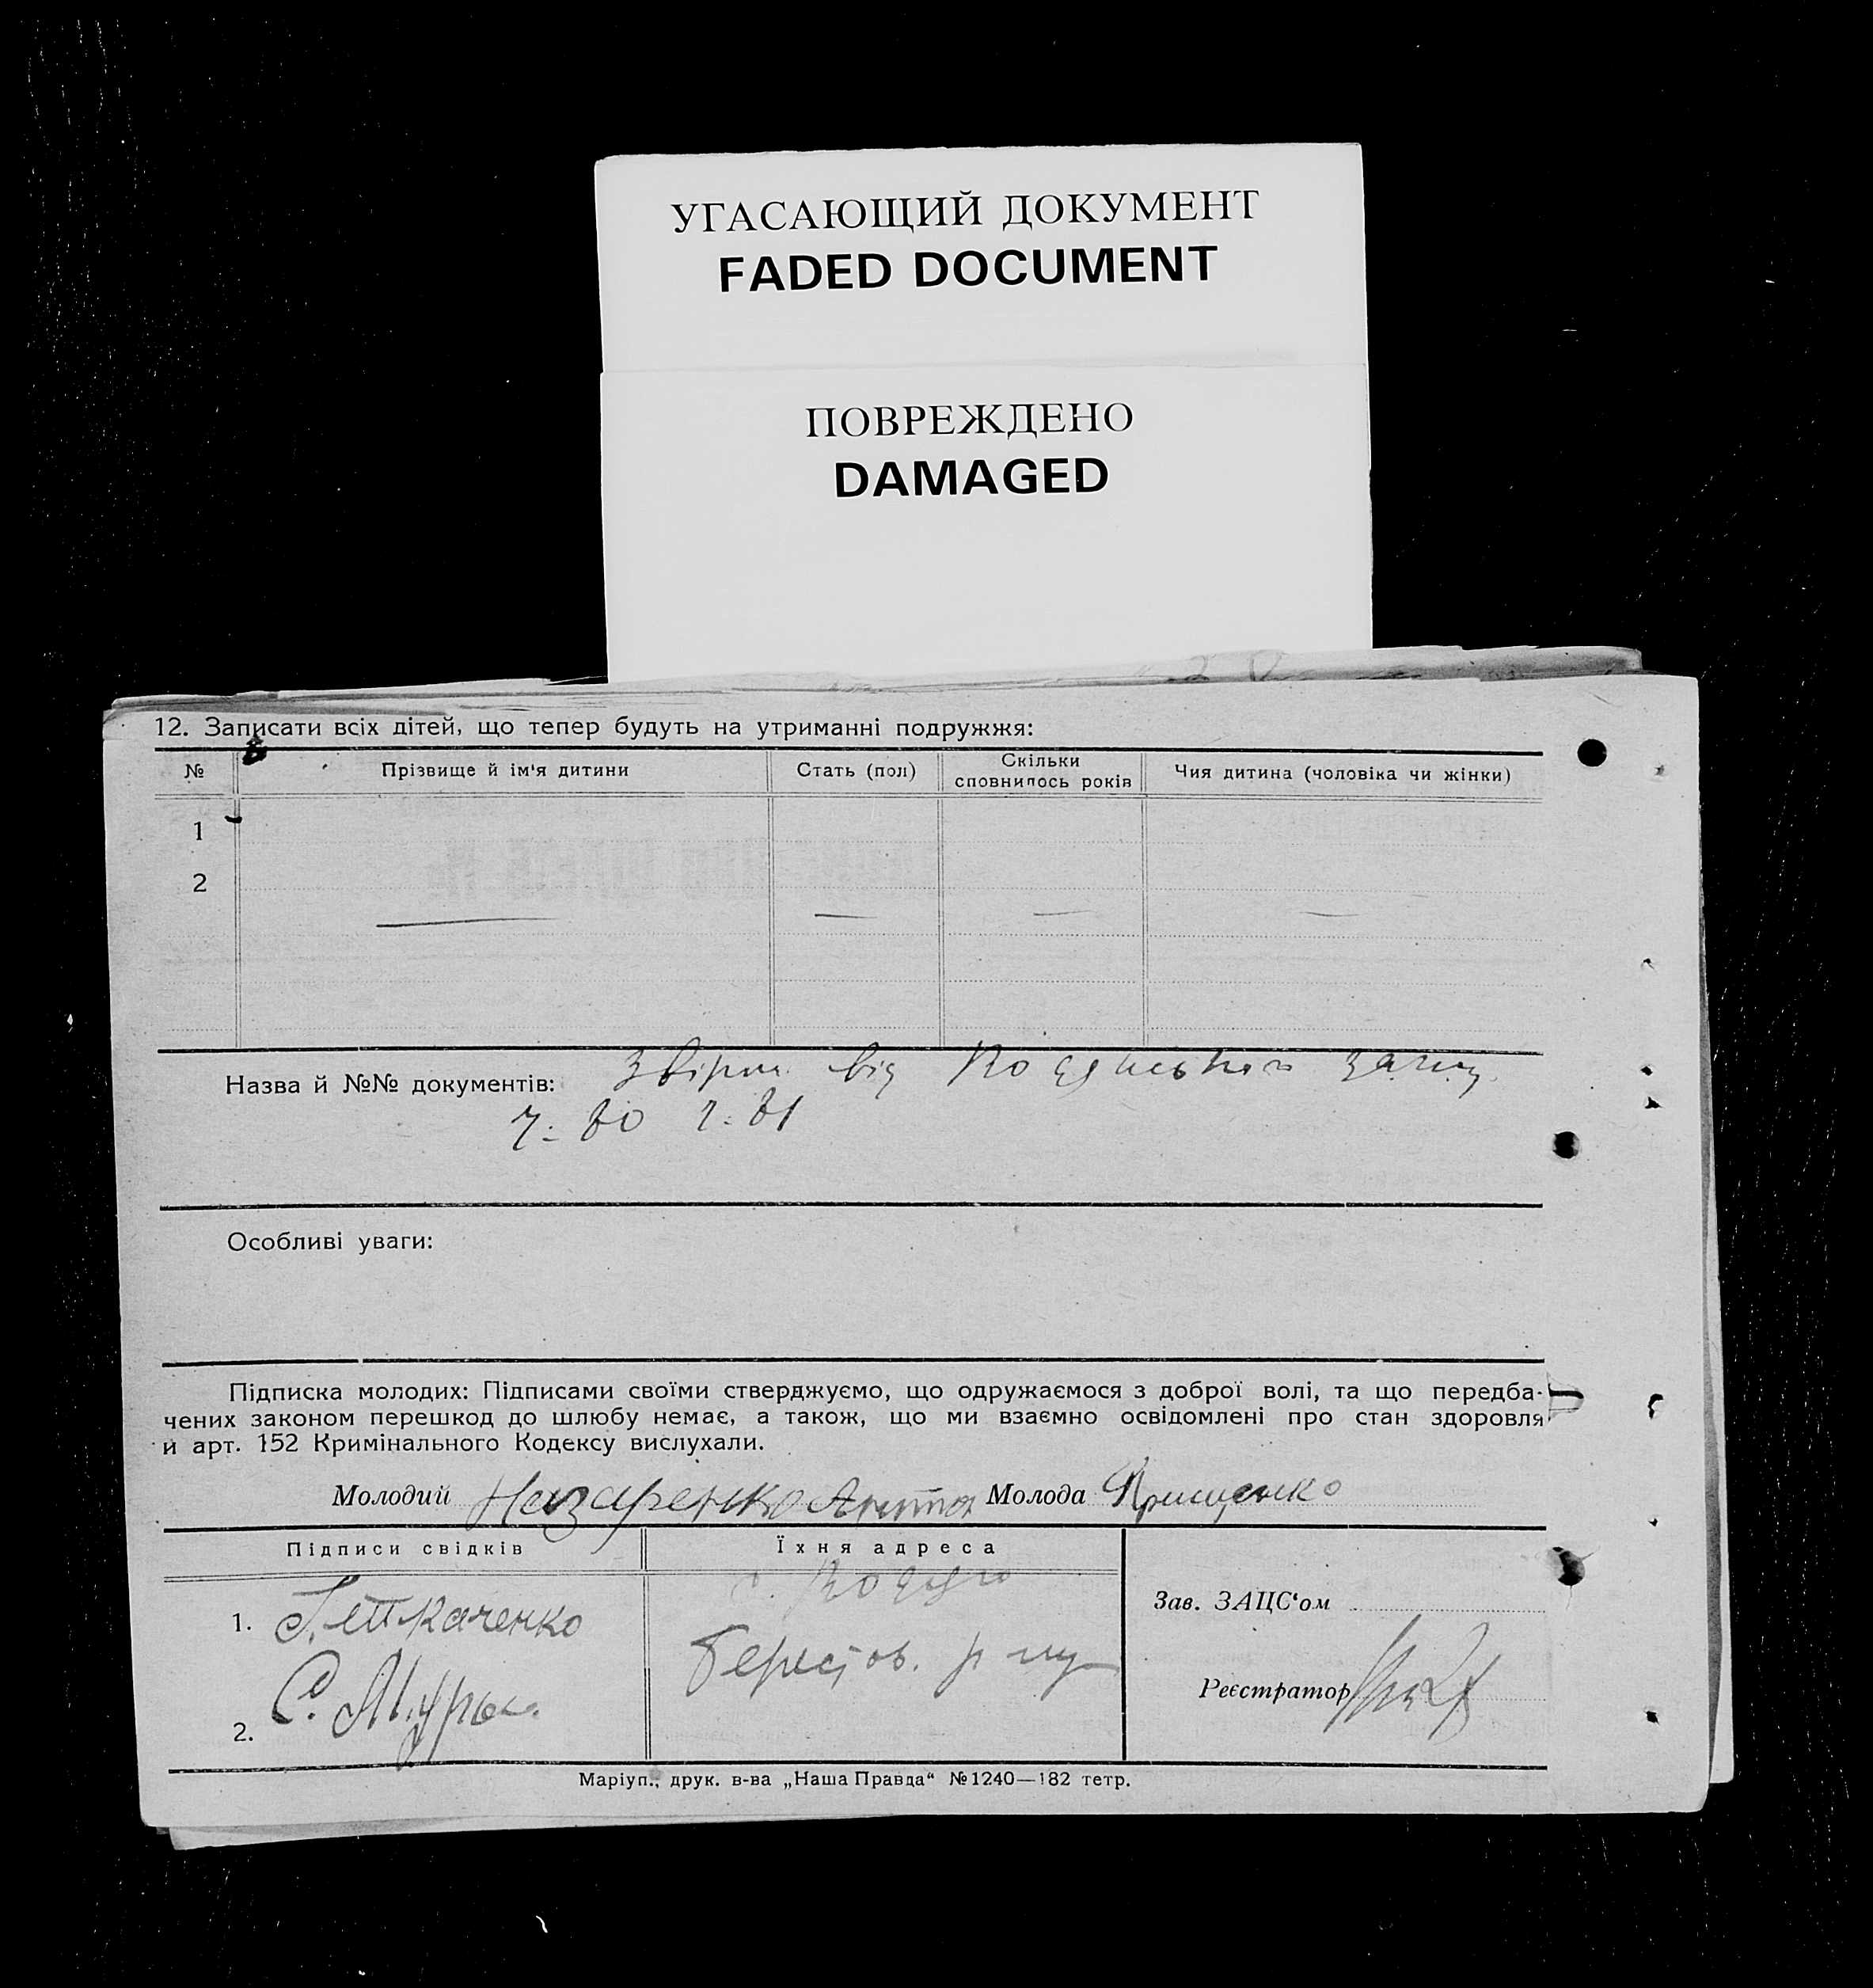 УГАСАЮЩИЙ ДОКУМЕНТ
FADED DOCUMENT
ПОВРЕЖДЕНО
DAMAGED
12. Записати всіх дітей, що тепер будуть на утриманні подружжя:
№ Прізвище й ім'я дитини Стать (пол) Скільки сповнилось років Чия дитина (чоловіка чи жінки)
1
2
Назва й №№ документів: від
Особливі уваги:
Підписка молодих: Підписами своїми стверджуємо, що одружаємося з доброї волі, та що передба-
чених законом перешкод до шлюбу немає, а також, що ми взаємно освідомлені про стан здоровля
и арт. 152 Кримінального Кодексу вислухали.
Молодий Назаренко Антон Молода Грищенко
Підписи свідків Їхня адреса
Зав. ЗАЦС'ом
1. Ткаченко
Реєстратор
2. С.
Маріуп., друк. в-ва „Наша Правда“ №1240—182 тетр.